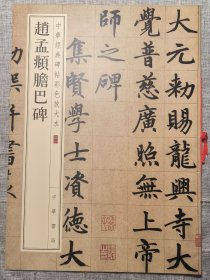 大元勑賜龍興寺
覺普慈廣照無上
師之碑
集賢學士資德大
中華經典碑帖彩色放大本
趙孟頫膽巴碑
中華書局